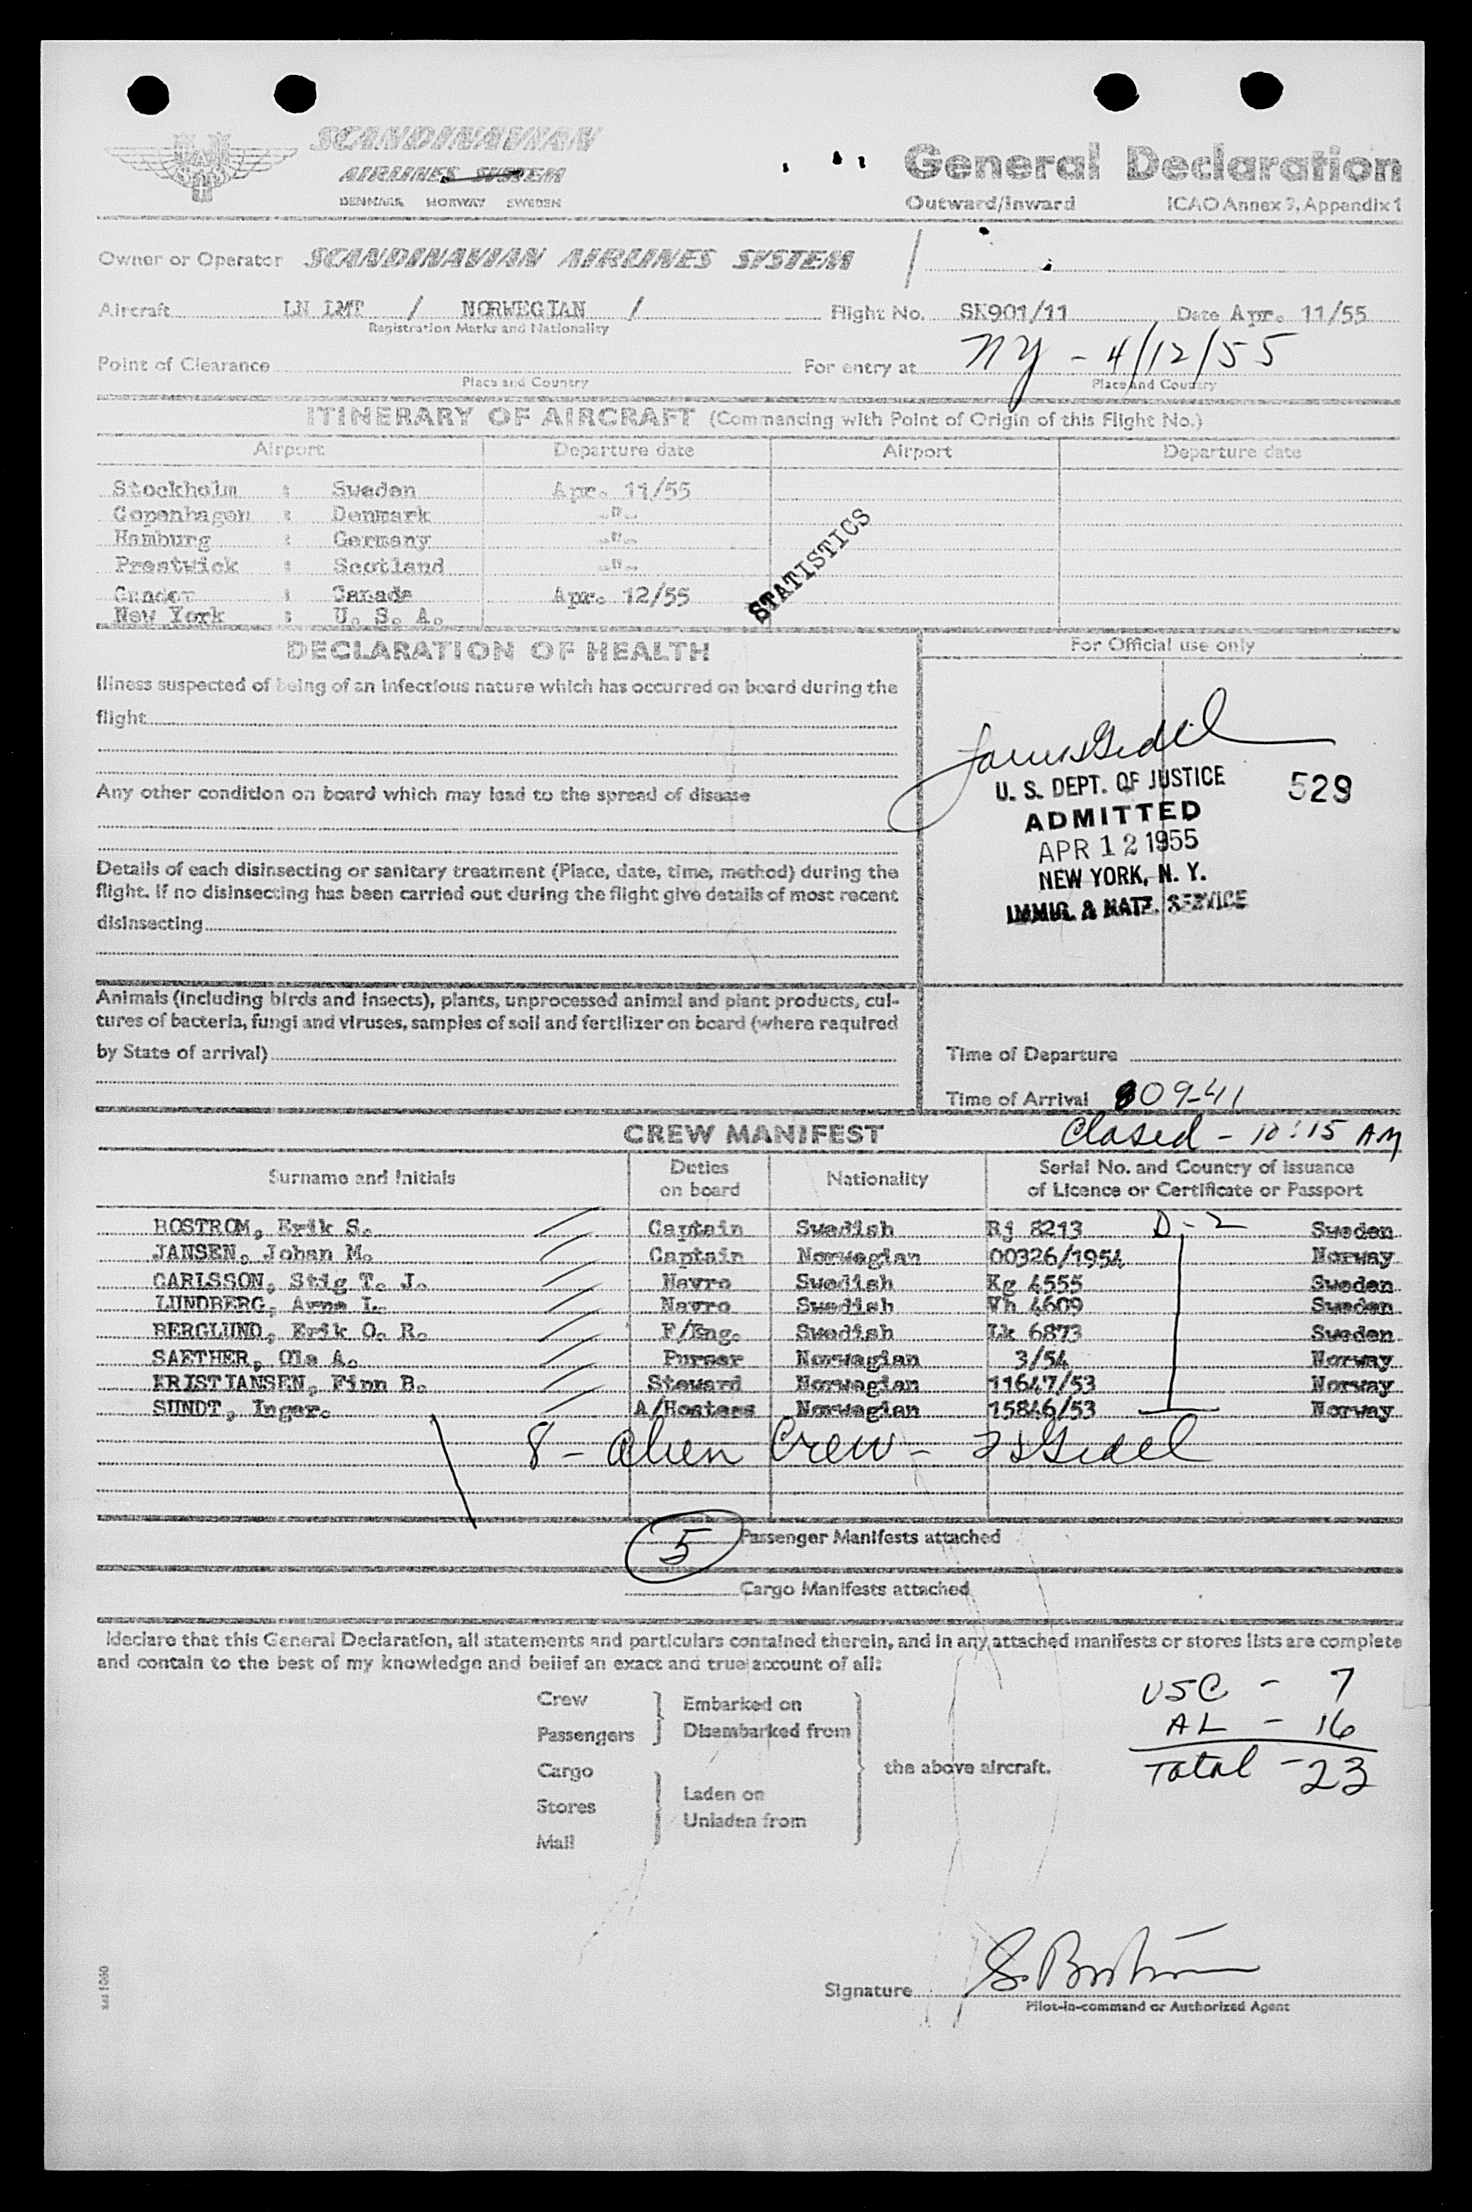 SCANDINAVIAN
AIRLINES SYSTEM
DENMARK NORWAY SWEDEN
General Declaration
Outward/Inward ICAO Annex 9, Appendix 1
Owner or Operator SCANDINAVIAN AIRLINES SYSTEM
Aircraft LN LMT / NORWEGIAN / Flight No. SK901/11 Date Apr. 11/55
Registration Marks and Nationality
Point of Clearance For entry at NY - 4/12/55
Place and Country Place and Country
ITINERARY OF AIRCRAFT (Commencing with Point of Origin of this Flight No.)
Airport Departure date Airport Departure date
Stockholm : Sweden Apr. 11/55
Copenhagen : Denmark -"-
Hamburg : Germany -"-
Prestwick : Scotland -"-
Gander : Canada Apr. 12/55
New York : U. S. A.
STATISTICS
DECLARATION OF HEALTH
For Official use only
Illness suspected of being of an infectious nature which has occurred on board during the
flight
Any other condition on board which may lead to the spread of disease
Details of each disinsecting or sanitary treatment (Place, date, time, method) during the
flight. If no disinsecting has been carried out during the flight give details of most recent
disinsecting
U. S. DEPT. OF JUSTICE 529
ADMITTED
APR 12 1955
NEW YORK, N. Y.
IMMIG. & NATZ. SERVICE
Animals (including birds and insects), plants, unprocessed animal and plant products, cul-
tures of bacteria, fungi and viruses, samples of soil and fertilizer on board (where required
by State of arrival)
Time of Departure
Time of Arrival 09-41
CREW MANIFEST Closed - 10:15 AM
Surname and Initials Duties on board Nationality Serial No. and Country of issuance of Licence or Certificate or Passport
BOSTROM, Erik S. Captain Swedish Rj 8213 D-2 Sweden
JANSEN, Johan M. Captain Norwegian 00326/1954 Norway
CARLSSON, Stig T. J. Navro Swedish Kg 4555 Sweden
LUNDBERG, Arne L. Navro Swedish Vh 4609 Sweden
BERGLUND, Erik O. R. F/Eng. Swedish Lk 6873 Sweden
SAETHER, Ola A. Purser Norwegian 3/54 Norway
KRISTIANSEN, Finn B. Steward Norwegian 11647/53 Norway
SUNDT, Inger. A/Hostess Norwegian 15846/53 Norway
8 - Alien Crew -
5 Passenger Manifests attached
Cargo Manifests attached
I declare that this General Declaration, all statements and particulars contained therein, and in any attached manifests or stores lists are complete
and contain to the best of my knowledge and belief an exact and true account of all:
Crew
Passengers
Embarked on
Disembarked from
Cargo
Stores
Mail
Laden on
Unladen from
the above aircraft.
USC - 7
AL - 16
Total - 23
Signature
Pilot-in-command or Authorized Agent